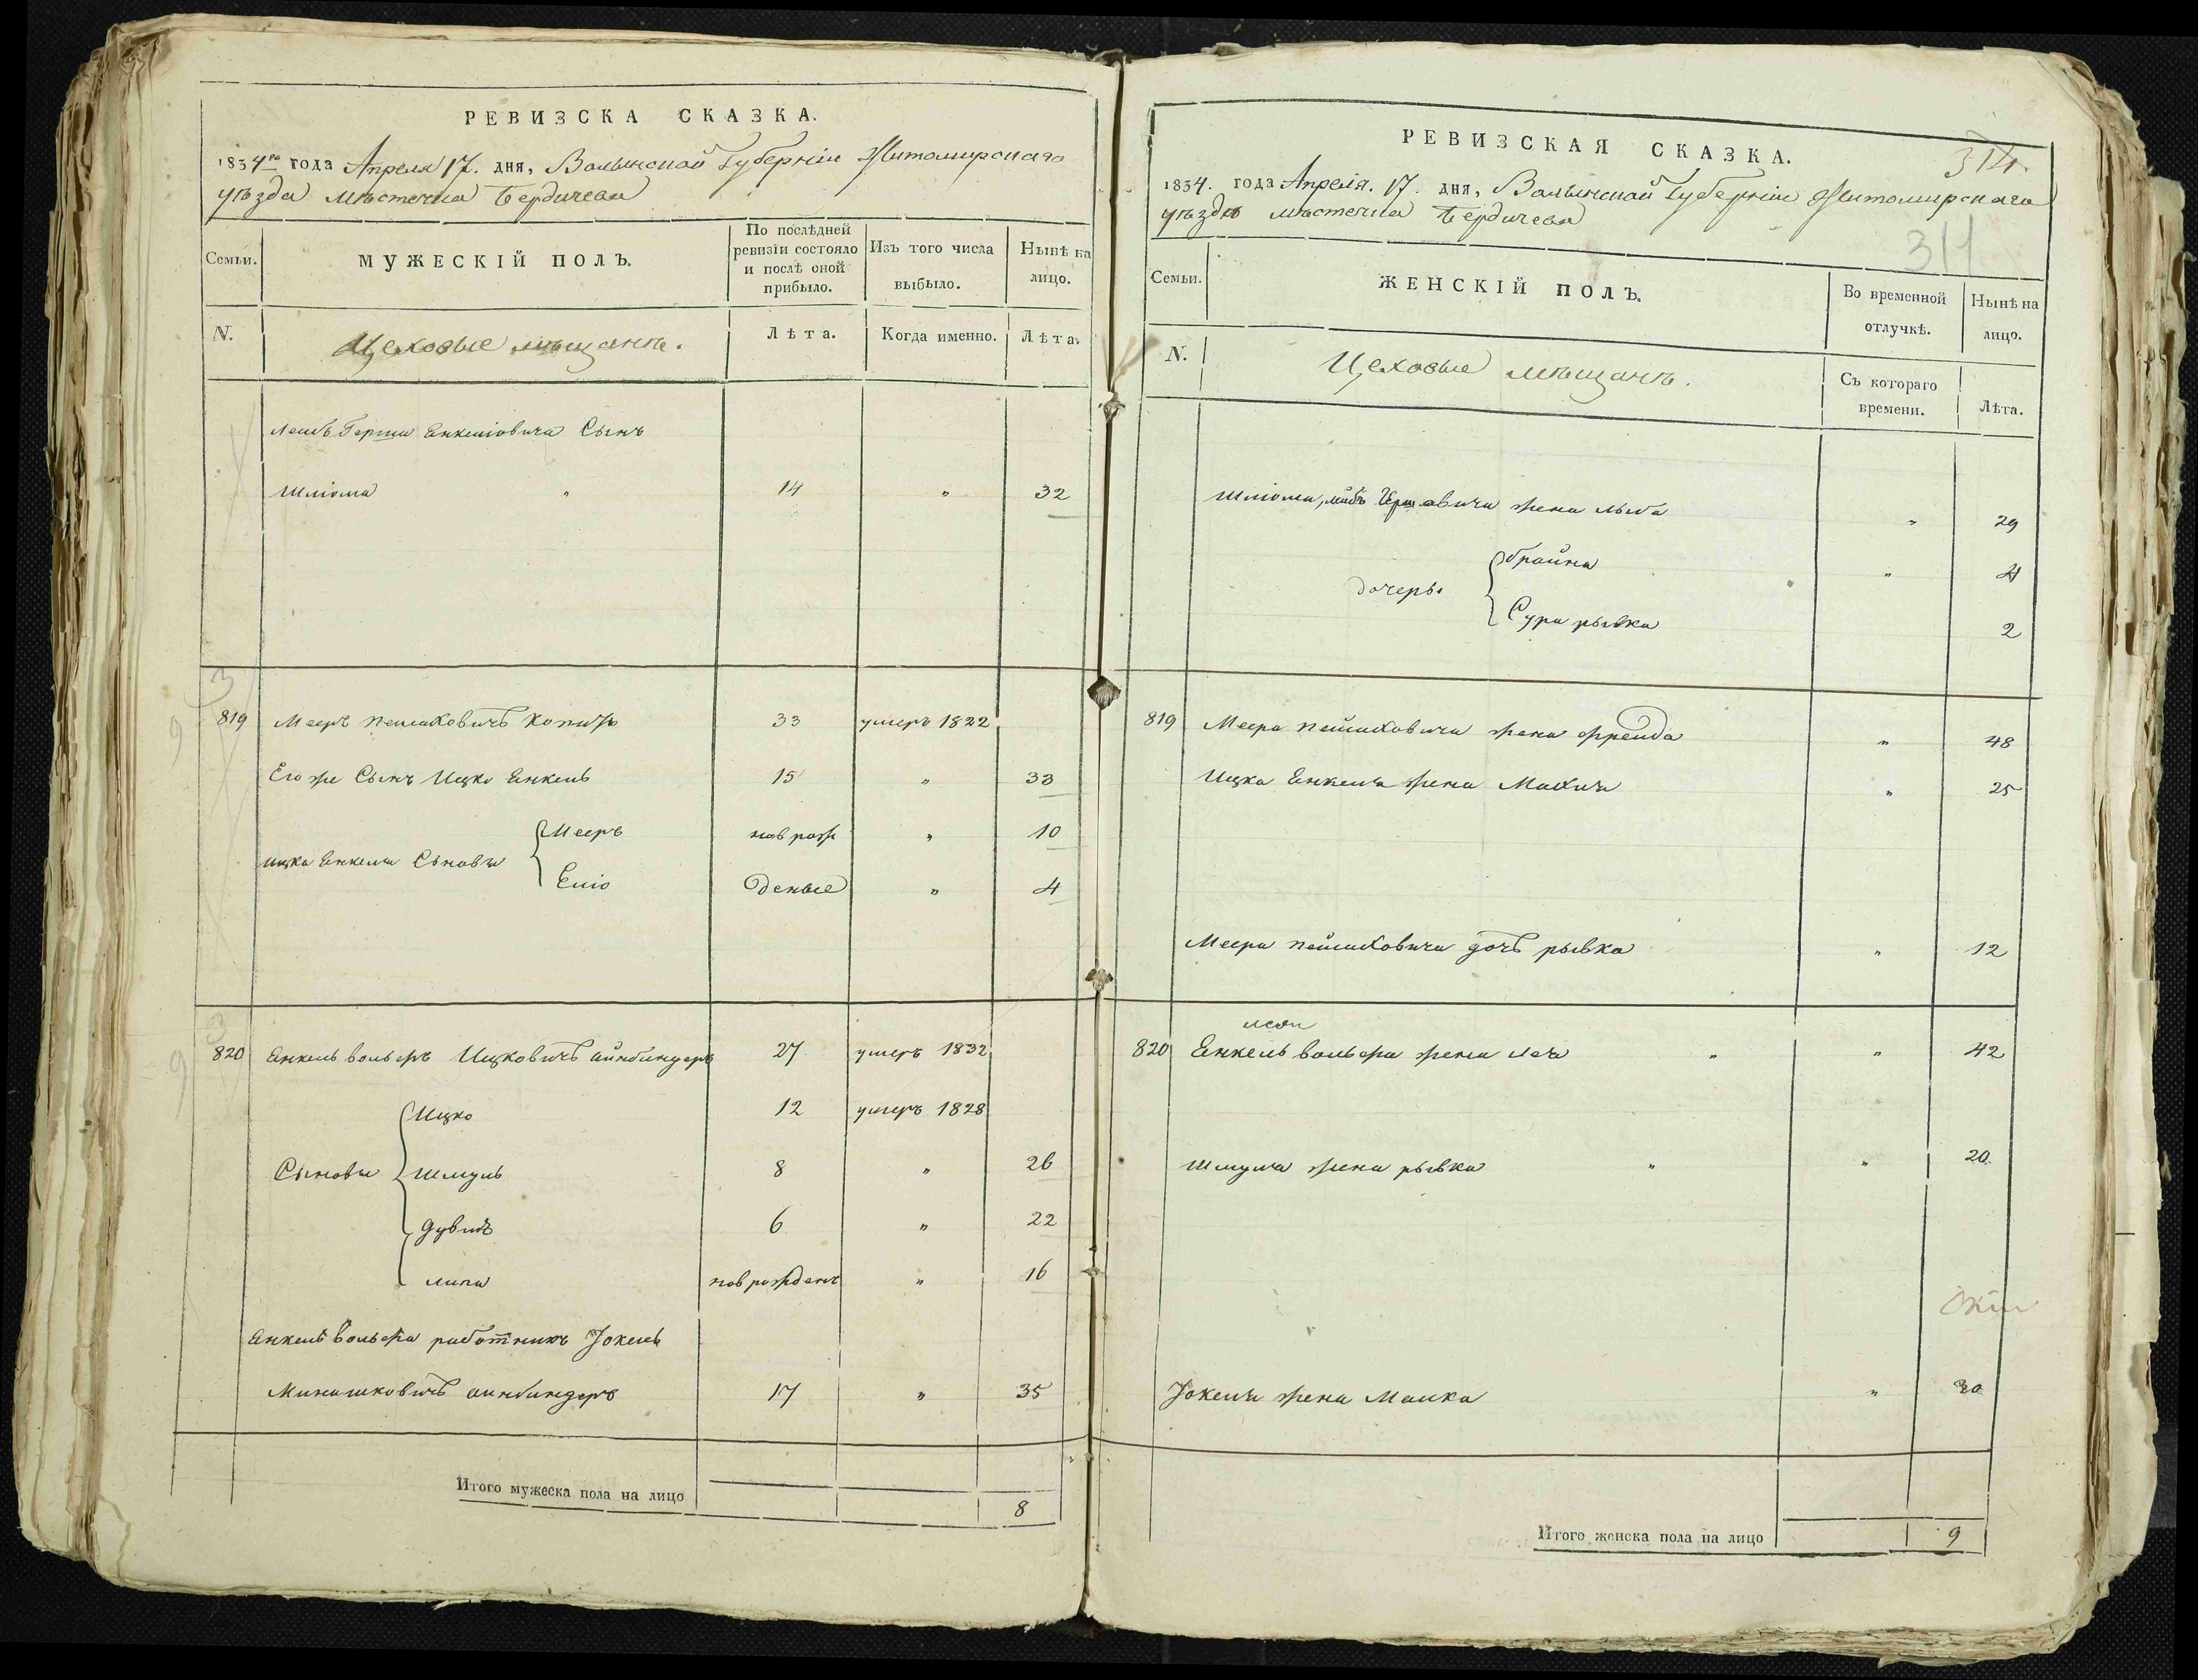 РЕВИЗСКА СКАЗКА.
1834го года Апреля 17. дня, Волынской Губерніи Житомирскаго
уѣзда мѣстечка Бердичева
Семьи.
МУЖЕСКІЙ ПОЛЪ.
По послѣдней
ревизіи состояло
и послѣ оной
прибыло.
Изъ того числа
выбыло.
Нынѣ на
лицо.
N.
Цеховые мѣщанѣ.
Лѣта.
Когда именно.
Лѣта.
Лейбъ Герша Енкелiовича Сынъ
Шліома " 14 " 32
819 Мееръ пейсаховичъ 33 умеръ 1822
Его же Сынъ Ицко Енкель 15 " 33
Мееръ новрож " 10
Ицка Енкеля Сыновя
Еліо деные " 4
820 Енкель вольфъ Ицковичъ айнбиндеръ 27 умеръ 1832
Ицко 12 умеръ 1828
Сыновя Шмуль 8 " 26
Дувидъ 6 " 22
липа новрожденъ " 16
Енкель вольфа работникъ Іокель
Минашковичъ аинбиндеръ 17 " 35
Итого мужеска пола на лицо
8
РЕВИЗСКАЯ СКАЗКА.
314.
1834. года Апреля. 17. дня, Волынской Губерніи Житомирскаго
уѣзда мѣстечка Бердичева
311
Семьи.
ЖЕНСКІЙ ПОЛЪ.
Во временной
отлучкѣ.
Нынѣ на
лицо.
N.
Цеховые мѣщанѣ.
Съ котораго
времени.
Лѣта.
Шліома, лейбъ Гершовича жена " 29
брайна " 4
дочеры
Сура рывка 2
819 Меера пейсаховича жена фрейда " 48
Ицка Енкеля жена Махля " 25
Меера пейсаховича дочъ рывка " 12
820 Енкель вольфа жена лея " " 42
Шмуля жена рывка " " 20
Іокеля жена Малка " 30
Итого женска пола на лицо
9